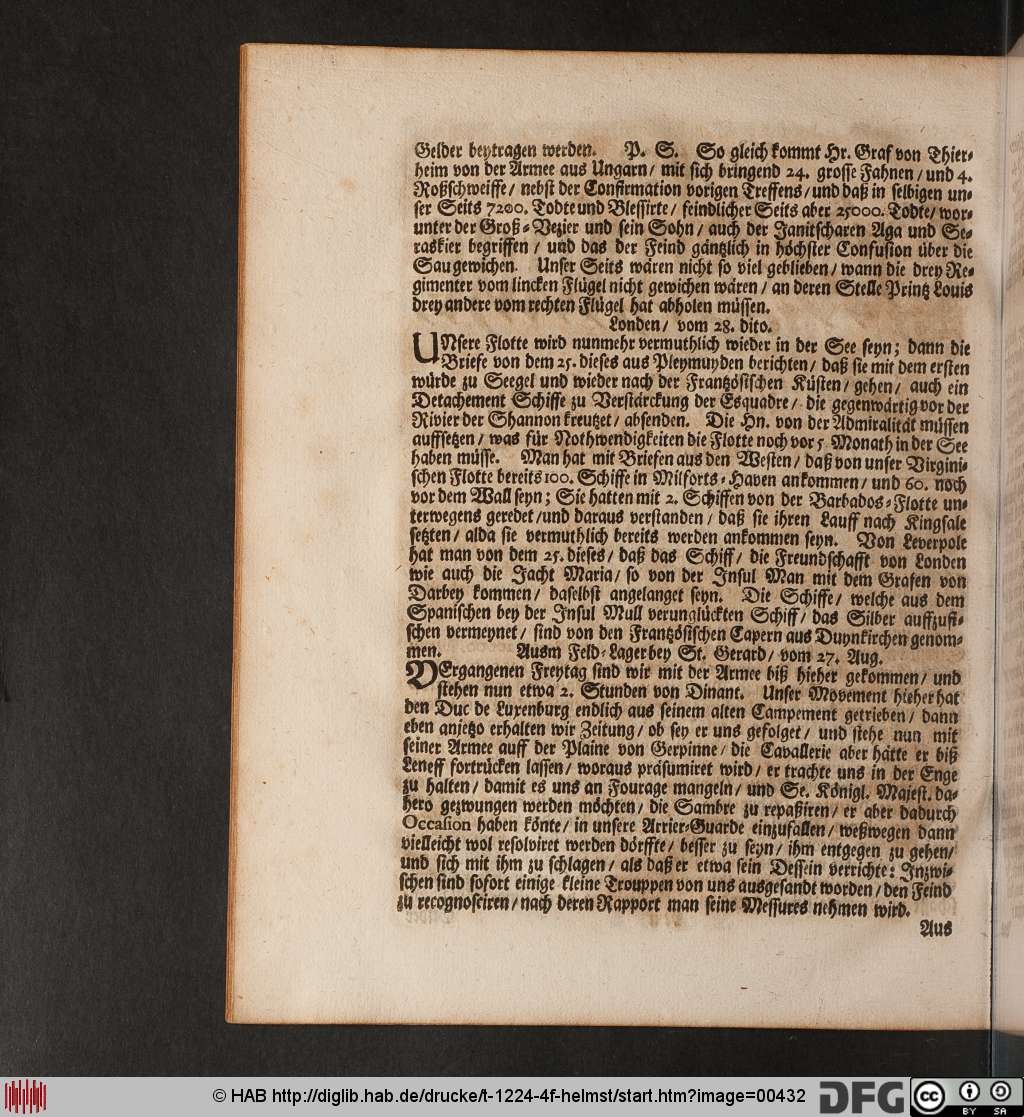 Gelder beytragen werden. P. S. So gleich kommt Hr. Graf von Thier-
heim von der Armee aus Ungarn/ mit sich bringend 24. grosse Fahnen/ und 4.
Roßschweiffe/ nebst der Confirmation vorigen Treffens/ und daß in selbigen un-
ser Seits 7200. Todte und Blessirte/ feindlicher Seits aber 25000. Todte/ wor-
unter der Groß-Vezier und sein Sohn/ auch der Janitscharen Aga und Se-
raskier begriffen/ und das der Feind gäntzlich in höchster Confusion über die
Sau gewichen. Unser Seits wären nicht so viel geblieben/ wann die drey Re-
gimenter vom lincken Flügel nicht gewichen wären/ an deren Stelle Printz Louis
drey andere vom rechten Flügel hat abholen müssen.
Londen/ vom 28. dito.
UNsere Flotte wird nunmehr vermuthlich wieder in der See seyn; dann die
Briefe von dem 25. dieses aus Pleymuyden berichten/ daß sie mit dem ersten
würde zu Seegel und wieder nach der Frantzösischen Küsten/ gehen/ auch ein
Detachement Schiffe zu Verstärckung der Esquadre/ die gegenwärtig vor der
Rivier der Shannon kreutzet/ absenden. Die Hn. von der Admiralität müssen
auffsetzen/ was für Nothwendigkeiten die Flotte noch vor 5 Monath in der See
haben müsse. Man hat mit Briefen aus den Westen/ daß von unser Virgini-
schen Flotte bereits 100. Schiffe in Milforts-Haven ankommen/ und 60. noch
vor dem Wall seyn; Sie hatten mit 2. Schiffen von der Barbados-Flotte un-
terwegens geredet/ und daraus verstanden/ daß sie ihren Lauff nach Kingsale
setzten/ alda sie vermuthlich bereits werden ankommen seyn. Von Leverpole
hat man von dem 25. dieses/ daß das Schiff/ die Freundschafft von Londen
wie auch die Jacht Maria/ so von der Insul Man mit dem Grafen von
Darbey kommen/ daselbst angelanget seyn. Die Schiffe/ welche aus dem
Spanischen bey der Insul Mull verunglückten Schiff/ das Silber auffzufi-
schen vermeynet/ sind von den Frantzösischen Capern aus Duynkirchen genom-
men. Ausm Feld-Lager bey St. Gerard/ vom 27. Aug.
VErgangenen Freytag sind wir mit der Armee biß hieher gekommen/ und
stehen nun etwa 2. Stunden von Dinant. Unser Movement hieher hat
den Duc de Luxenburg endlich aus seinem alten Campement getrieben/ dann
eben anjetzo erhalten wir Zeitung/ ob sey er uns gefolget/ und stehe nun mit
seiner Armee auff der Plaine von Gerpinne/ die Cavallerie aber hätte er biß
Leneff fortrücken lassen/ woraus präsumiret wird/ er trachte uns in der Enge
zu halten/ damit es uns an Fourage mangeln/ und Se. Königl. Majest. da-
hero gezwungen werden möchten/ die Sambre zu repaßiren/ er aber dadurch
Occasion haben könte/ in unsere Arrier-Guarde einzufallen/ weßwegen dann
vielleicht wol resolviret werden dörffte/ besser zu seyn/ ihm entgegen zu gehen/
und sich mit ihm zu schlagen/ als daß er etwa sein Dessein verrichte: Inzwi-
schen sind sofort einige kleine Trouppen von uns ausgesandt worden/ den Feind
zu recognosciren/ nach deren Rapport man seine Messures nehmen wird.
Aus
© HAB http://diglib.hab.de/drucke/t-1224-4f-helmst/start.htm?image=00432
DFG
cc BY SA